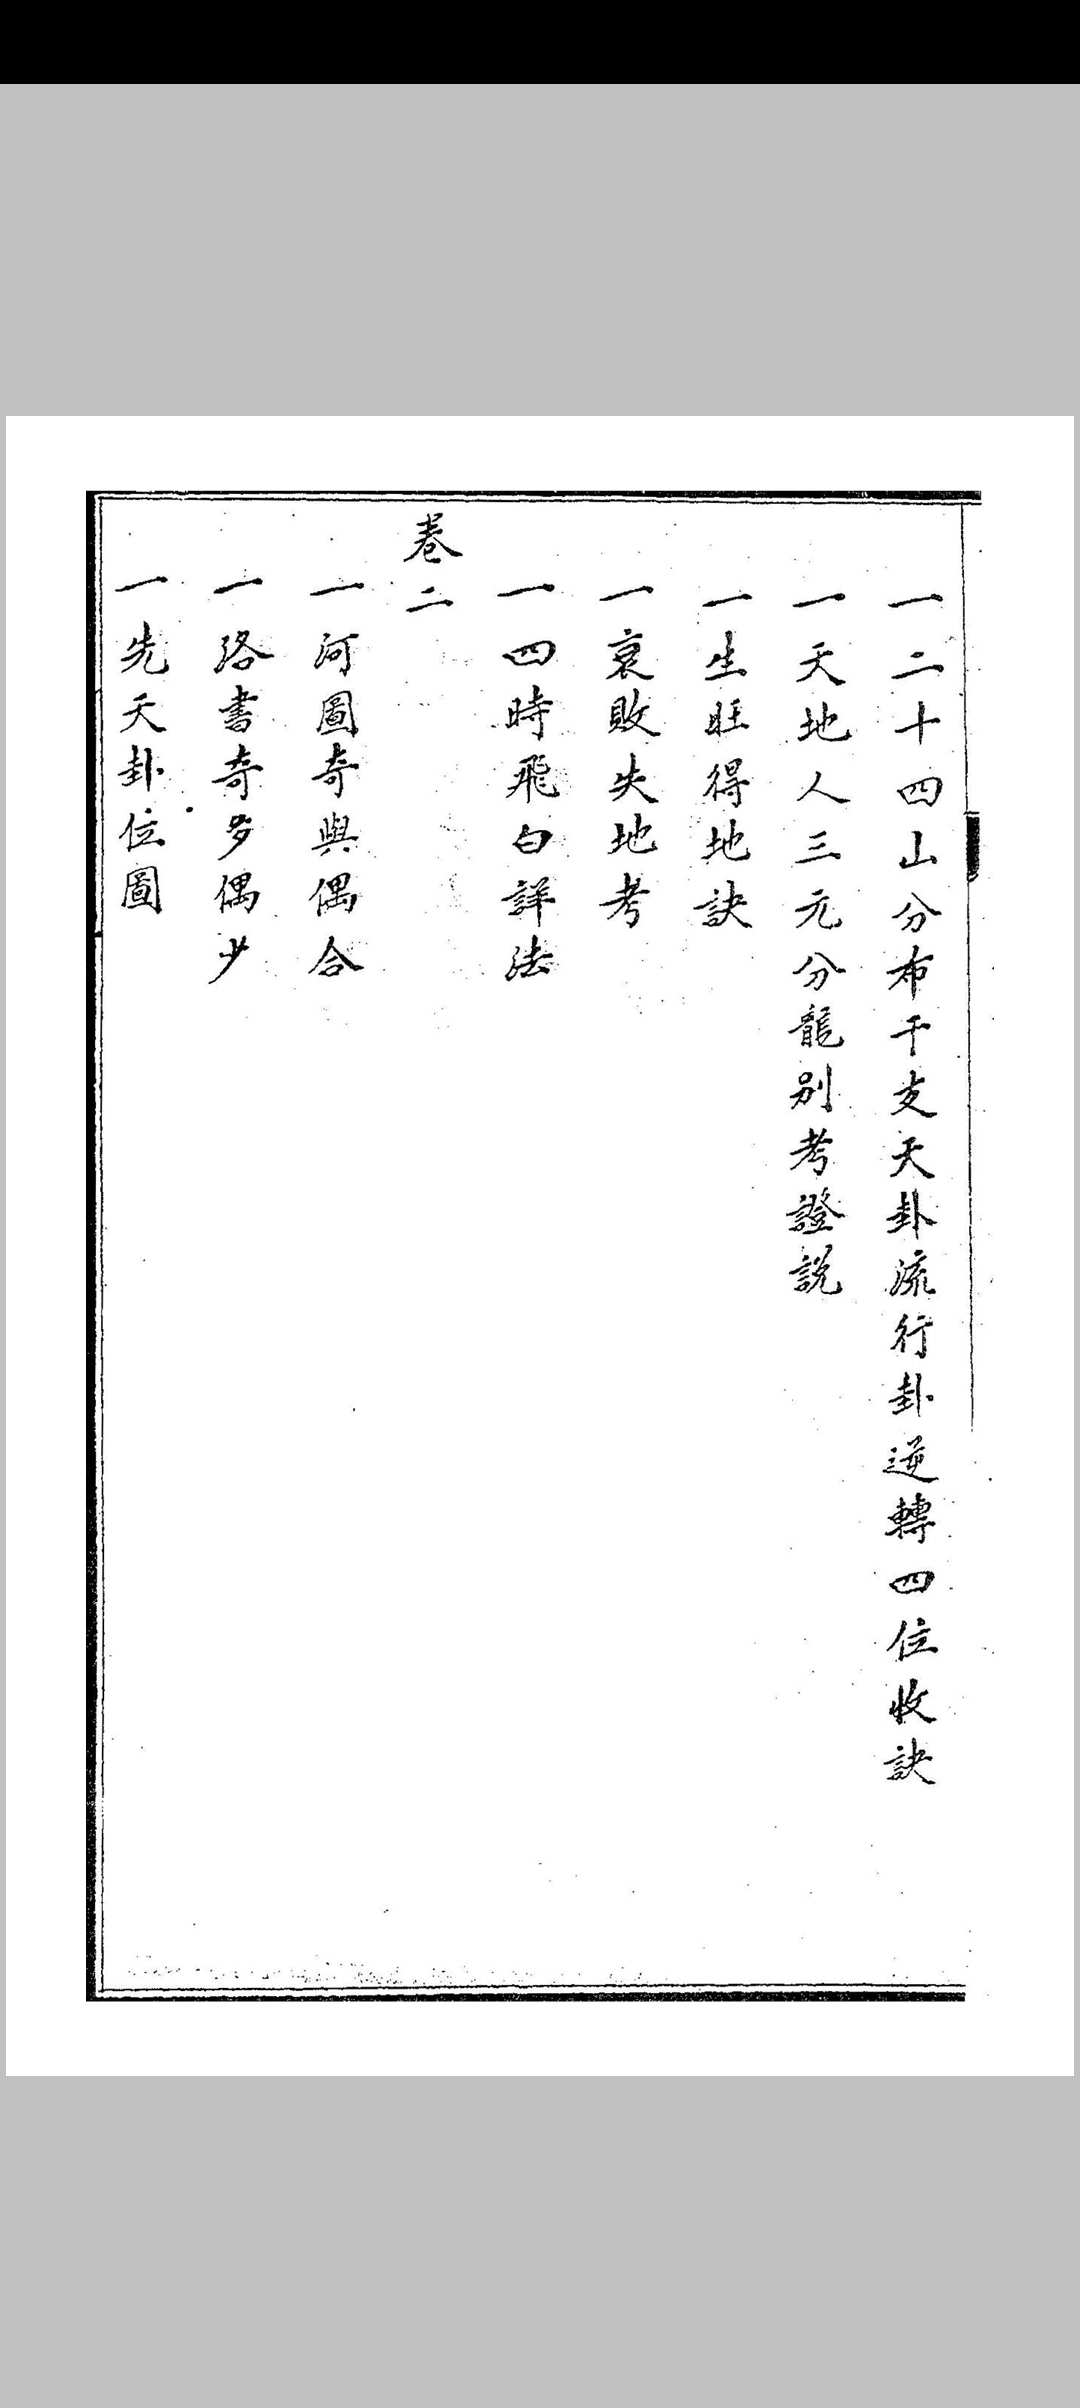 一二十四山分布干支天卦流行卦逆轉四位收訣
一天地人三元分龍別考證説
一生旺得地訣
一衰敗失地考
一四時飛白詳法
卷二
一河圖奇與偶合
一洛書奇多偶少
一先天卦位圖